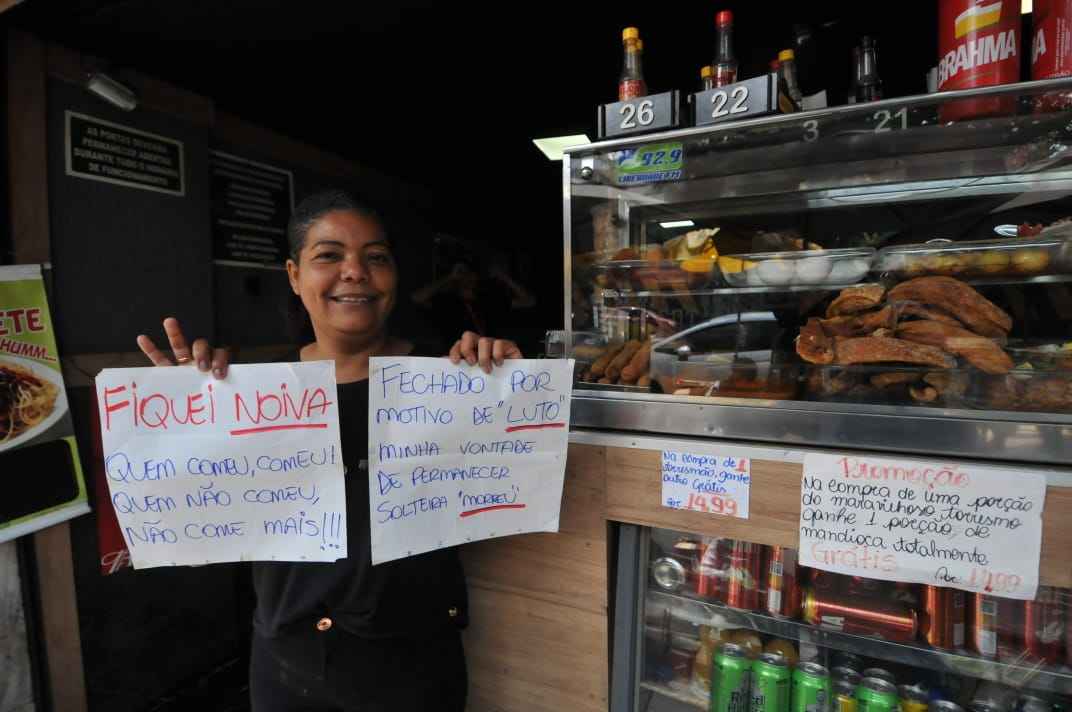 AS PORTAS DEVERÃO
PERMANECER ABERTAS
DURANTE TODO O HORÁRIO
DE FUNCIONAMENTO
ETE
HUMM...
FIQUEI NOIVA
QUEM COMEU, COMEU!
QUEM NÃO COMEU,
NÃO COME MAIS!!!
FECHADO POR
MOTIVO DE "LUTO"
MINHA VONTADE
DE PERMANECER
SOLTEIRA "MORREU"
26
22
3
21
BRAHMA
92.9
LIBERDADE FM
Na compra de 1
torresmão, ganhe
outro Grátis
por 14,99
Promoção
Na compra de uma porção
do maravinhoso torresmo
ganhe 1 porção, de
mandioca totalmente
Grátis
por 14,99